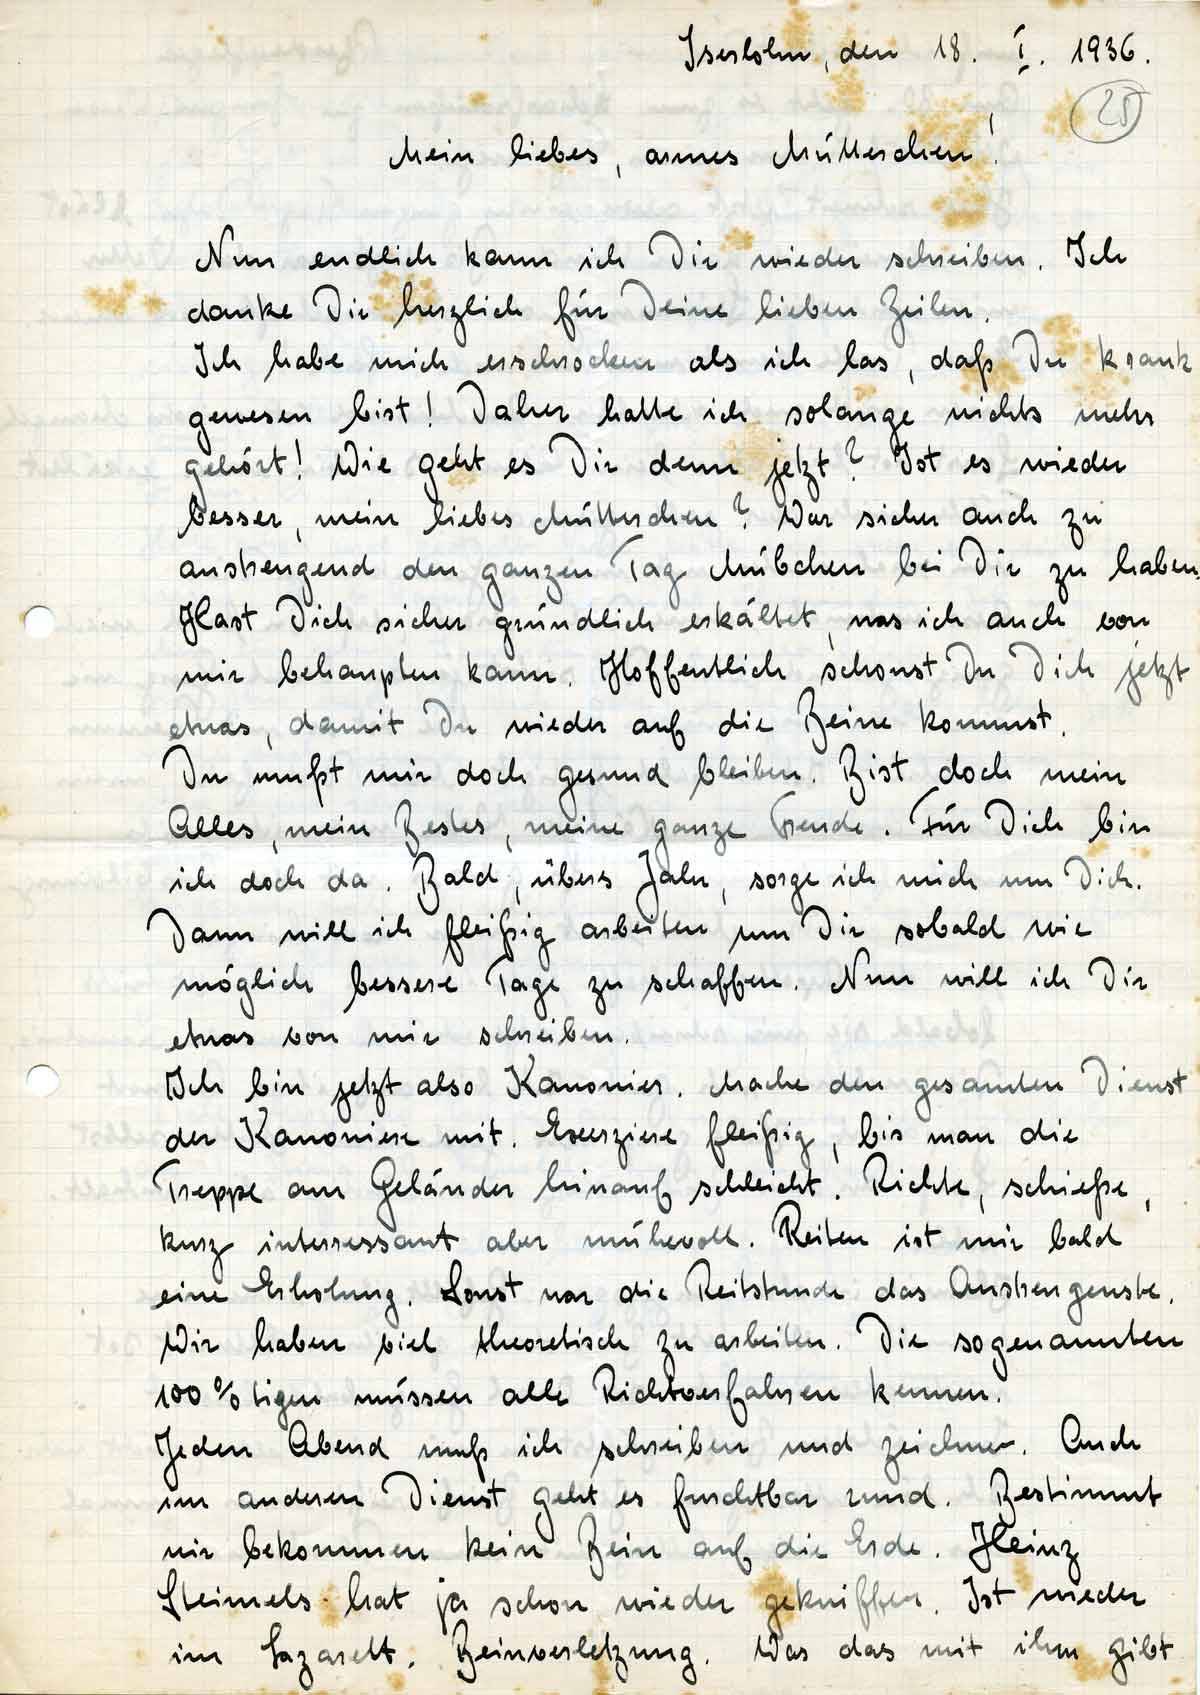 Iserlohn, den 18. I. 1936.
28
Mein liebes, armes Mütterchen!
Nun endlich kann ich Dir wieder schreiben. Ich
danke Dir herzlich für Deine lieben Zeilen.
Ich habe mich erschrocken als ich las, daß Du krank
gewesen bist! Daher hatte ich solange nichts mehr
gehört! Wie geht es Dir denn jetzt? Ist es wieder
besser, mein liebes Mütterchen? War sicher auch zu
anstrengend den ganzen Tag Mübchen bei Dir zu haben.
Hast Dich sicher gründlich erkältet, was ich auch von
mir behaupten kann. Hoffentlich schonst Du Dich jetzt
etwas, damit Du wieder auf die Beine kommst.
Du mußt mir doch gesund bleiben. Bist doch mein
Alles, mein Bestes, meine ganze Freude. Für Dich bin
ich doch da. Bald, übers Jahr, sorge ich mich um Dich.
Dann will ich fleißig arbeiten um Dir sobald wie
möglich bessere Tage zu schaffen. Nun will ich Dir
etwas von mir schreiben.
Ich bin jetzt also Kanonier. Mache den gesamten Dienst
der Kanoniere mit. Exerziere fleißig, bis man die
Treppe am Geländer hinauf schleicht. Richte, schieße,
kurz interressant aber mühevoll. Reiten ist mir bald
eine Erholung. Sonst war die Reitstunde das Anstrengenste.
Wir haben viel theoretisch zu arbeiten. Die sogenannten
100%tigen müssen alle Richtverfahren kennen.
Jeden Abend muß ich schreiben und zeichnen. Auch
im anderen Dienst geht es furchtbar rund. Bestimmt
wir bekommen kein Bein auf die Erde. Heinz
Steimels hat ja schon wieder gekniffen. Ist wieder
im Lazarett. Beinverletzung. Was das mit ihm gibt